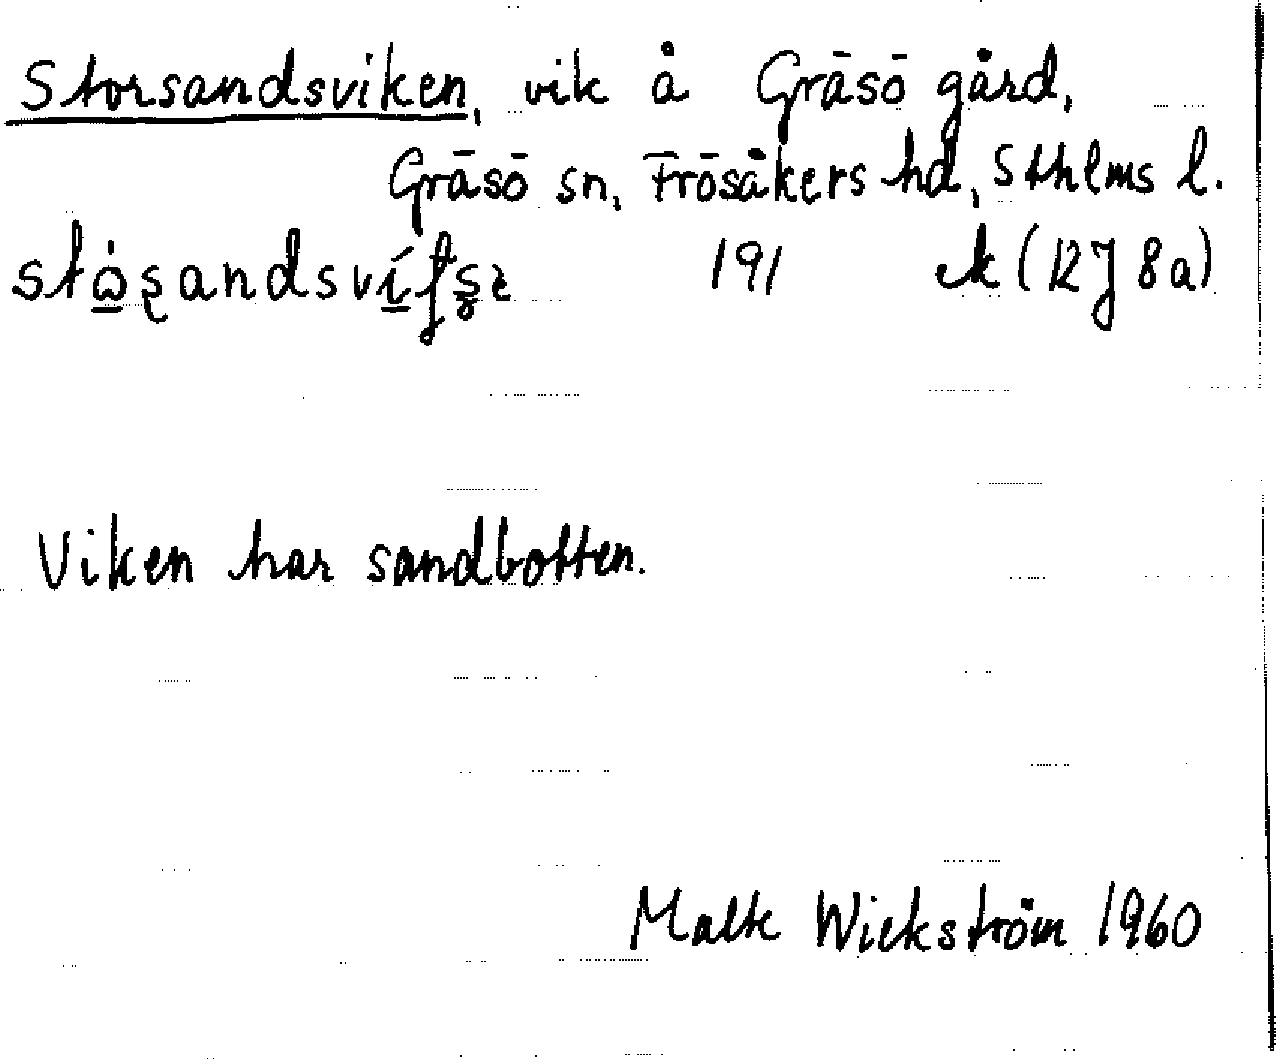 Storsandsviken, vik å Gräsö gård,
Gräsö sn, Frösåkers hd, Sthlms l.
191 ek (12J 8a)
Viken har sandbotten.
Wickström 1960